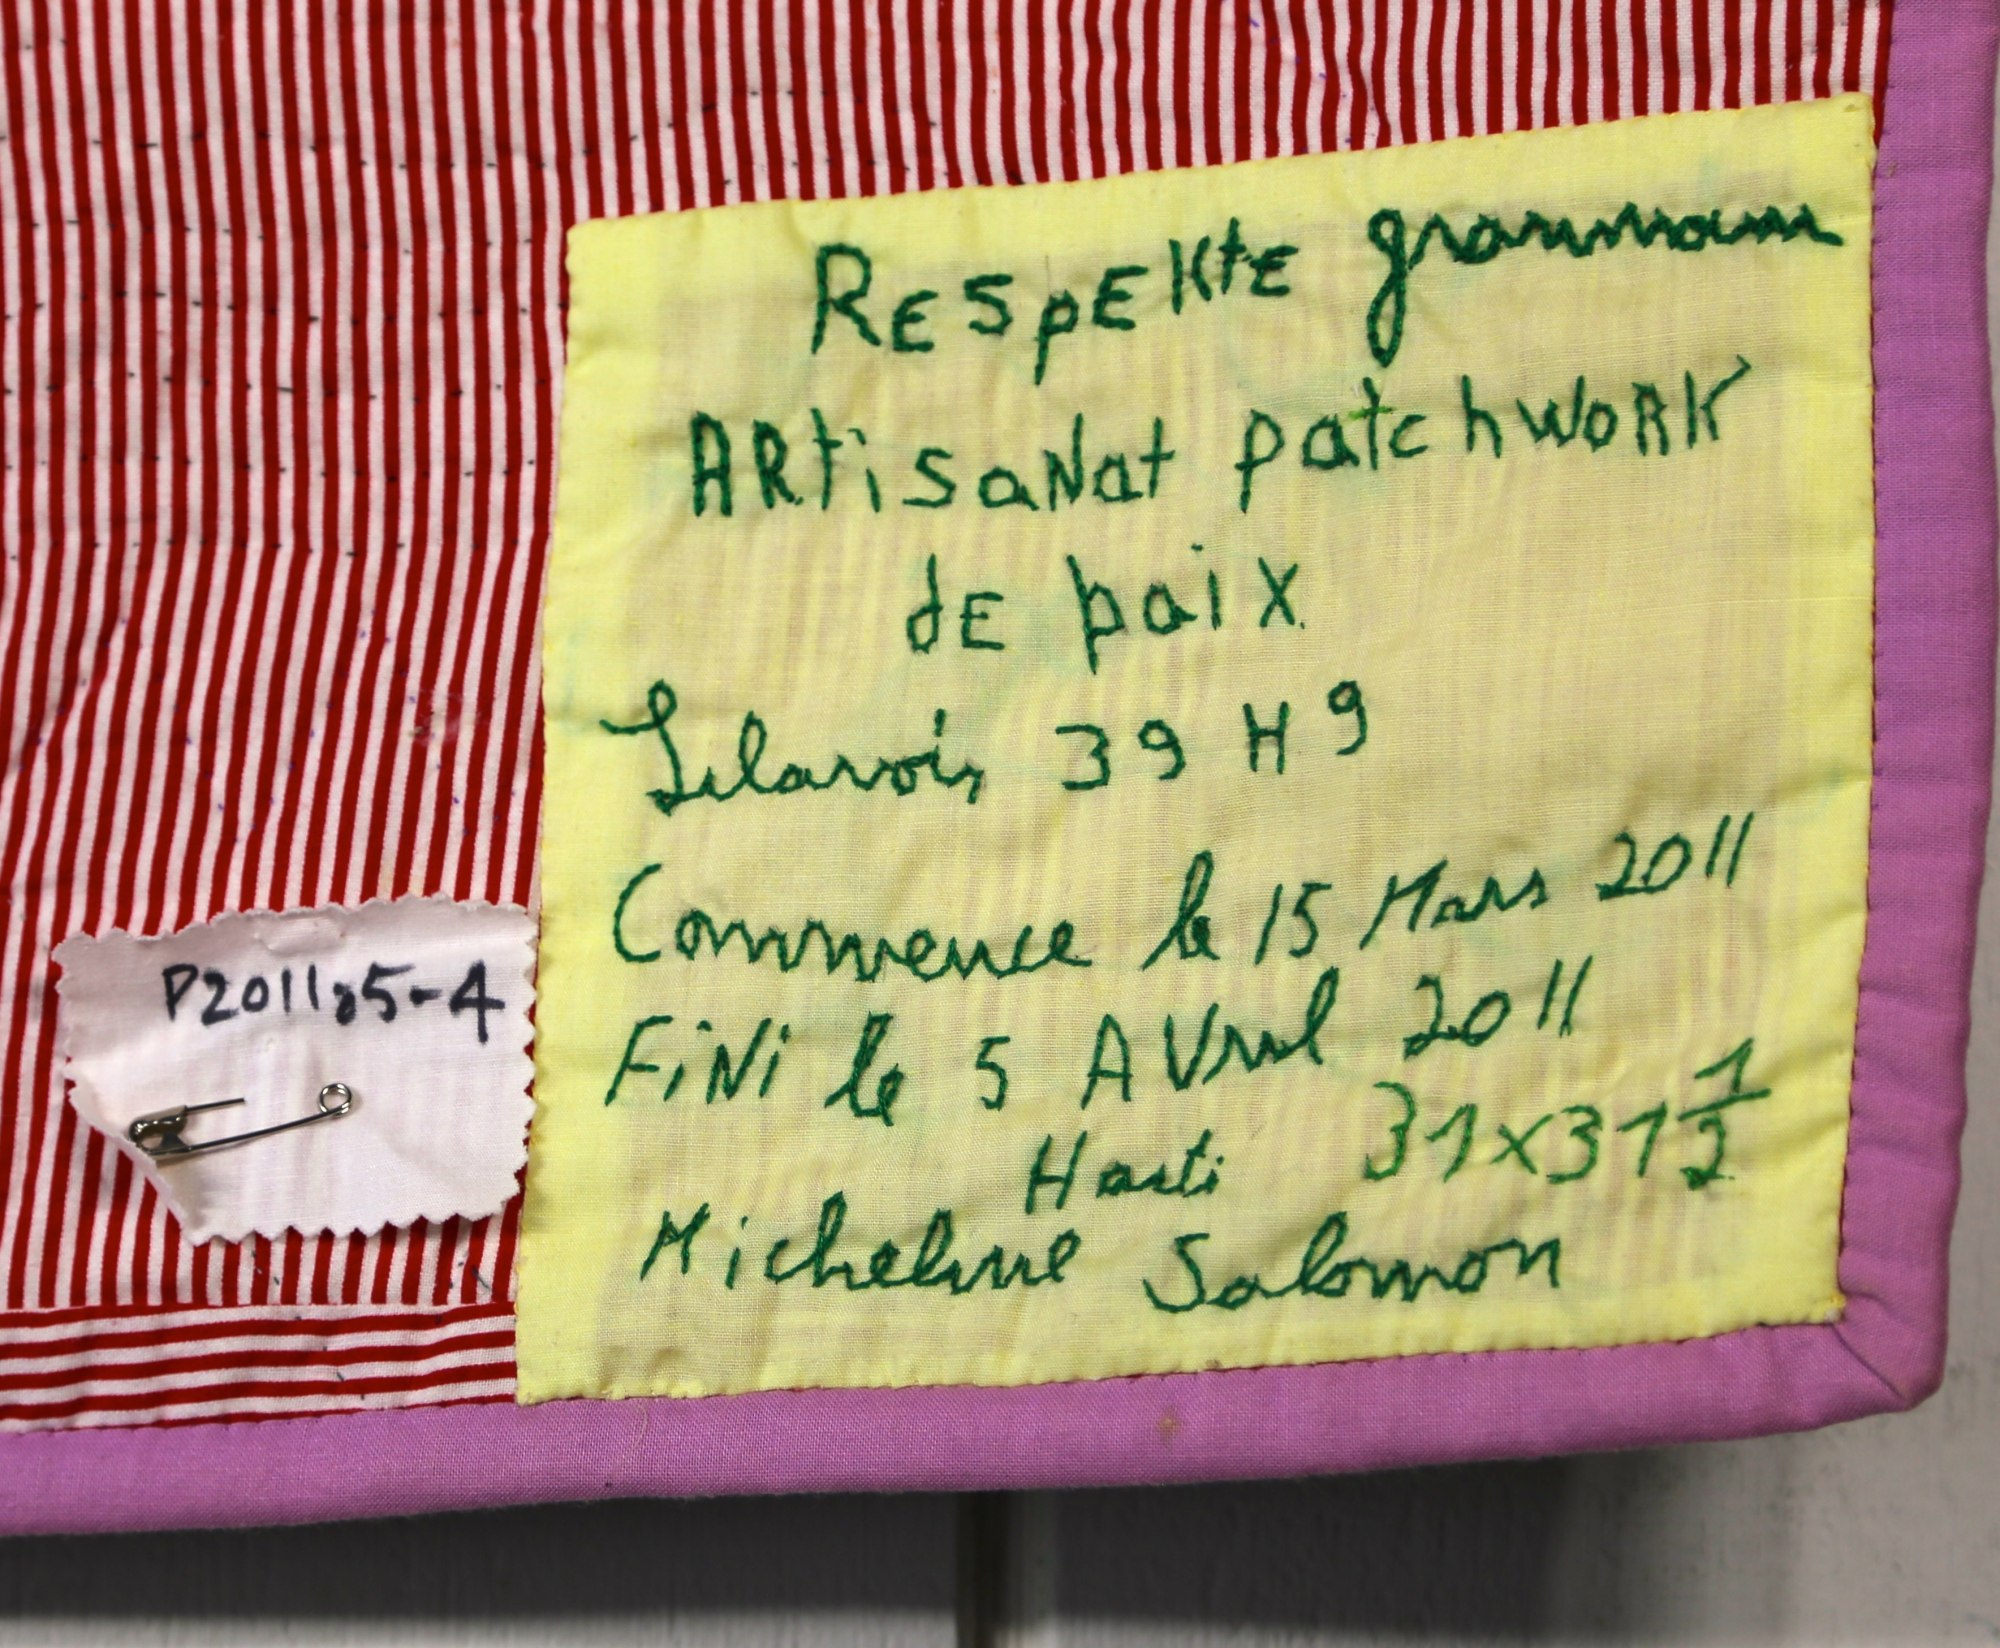 RESpEKtE grannmoun
ARtisaNat patchwoRK
dE paix
Lilavois 39 H 9
Commence le 15 Mars 2011
FiNi le 5 AVril 2011
Haiti 31x31 1/2
Micheline Salomon
P201105-4